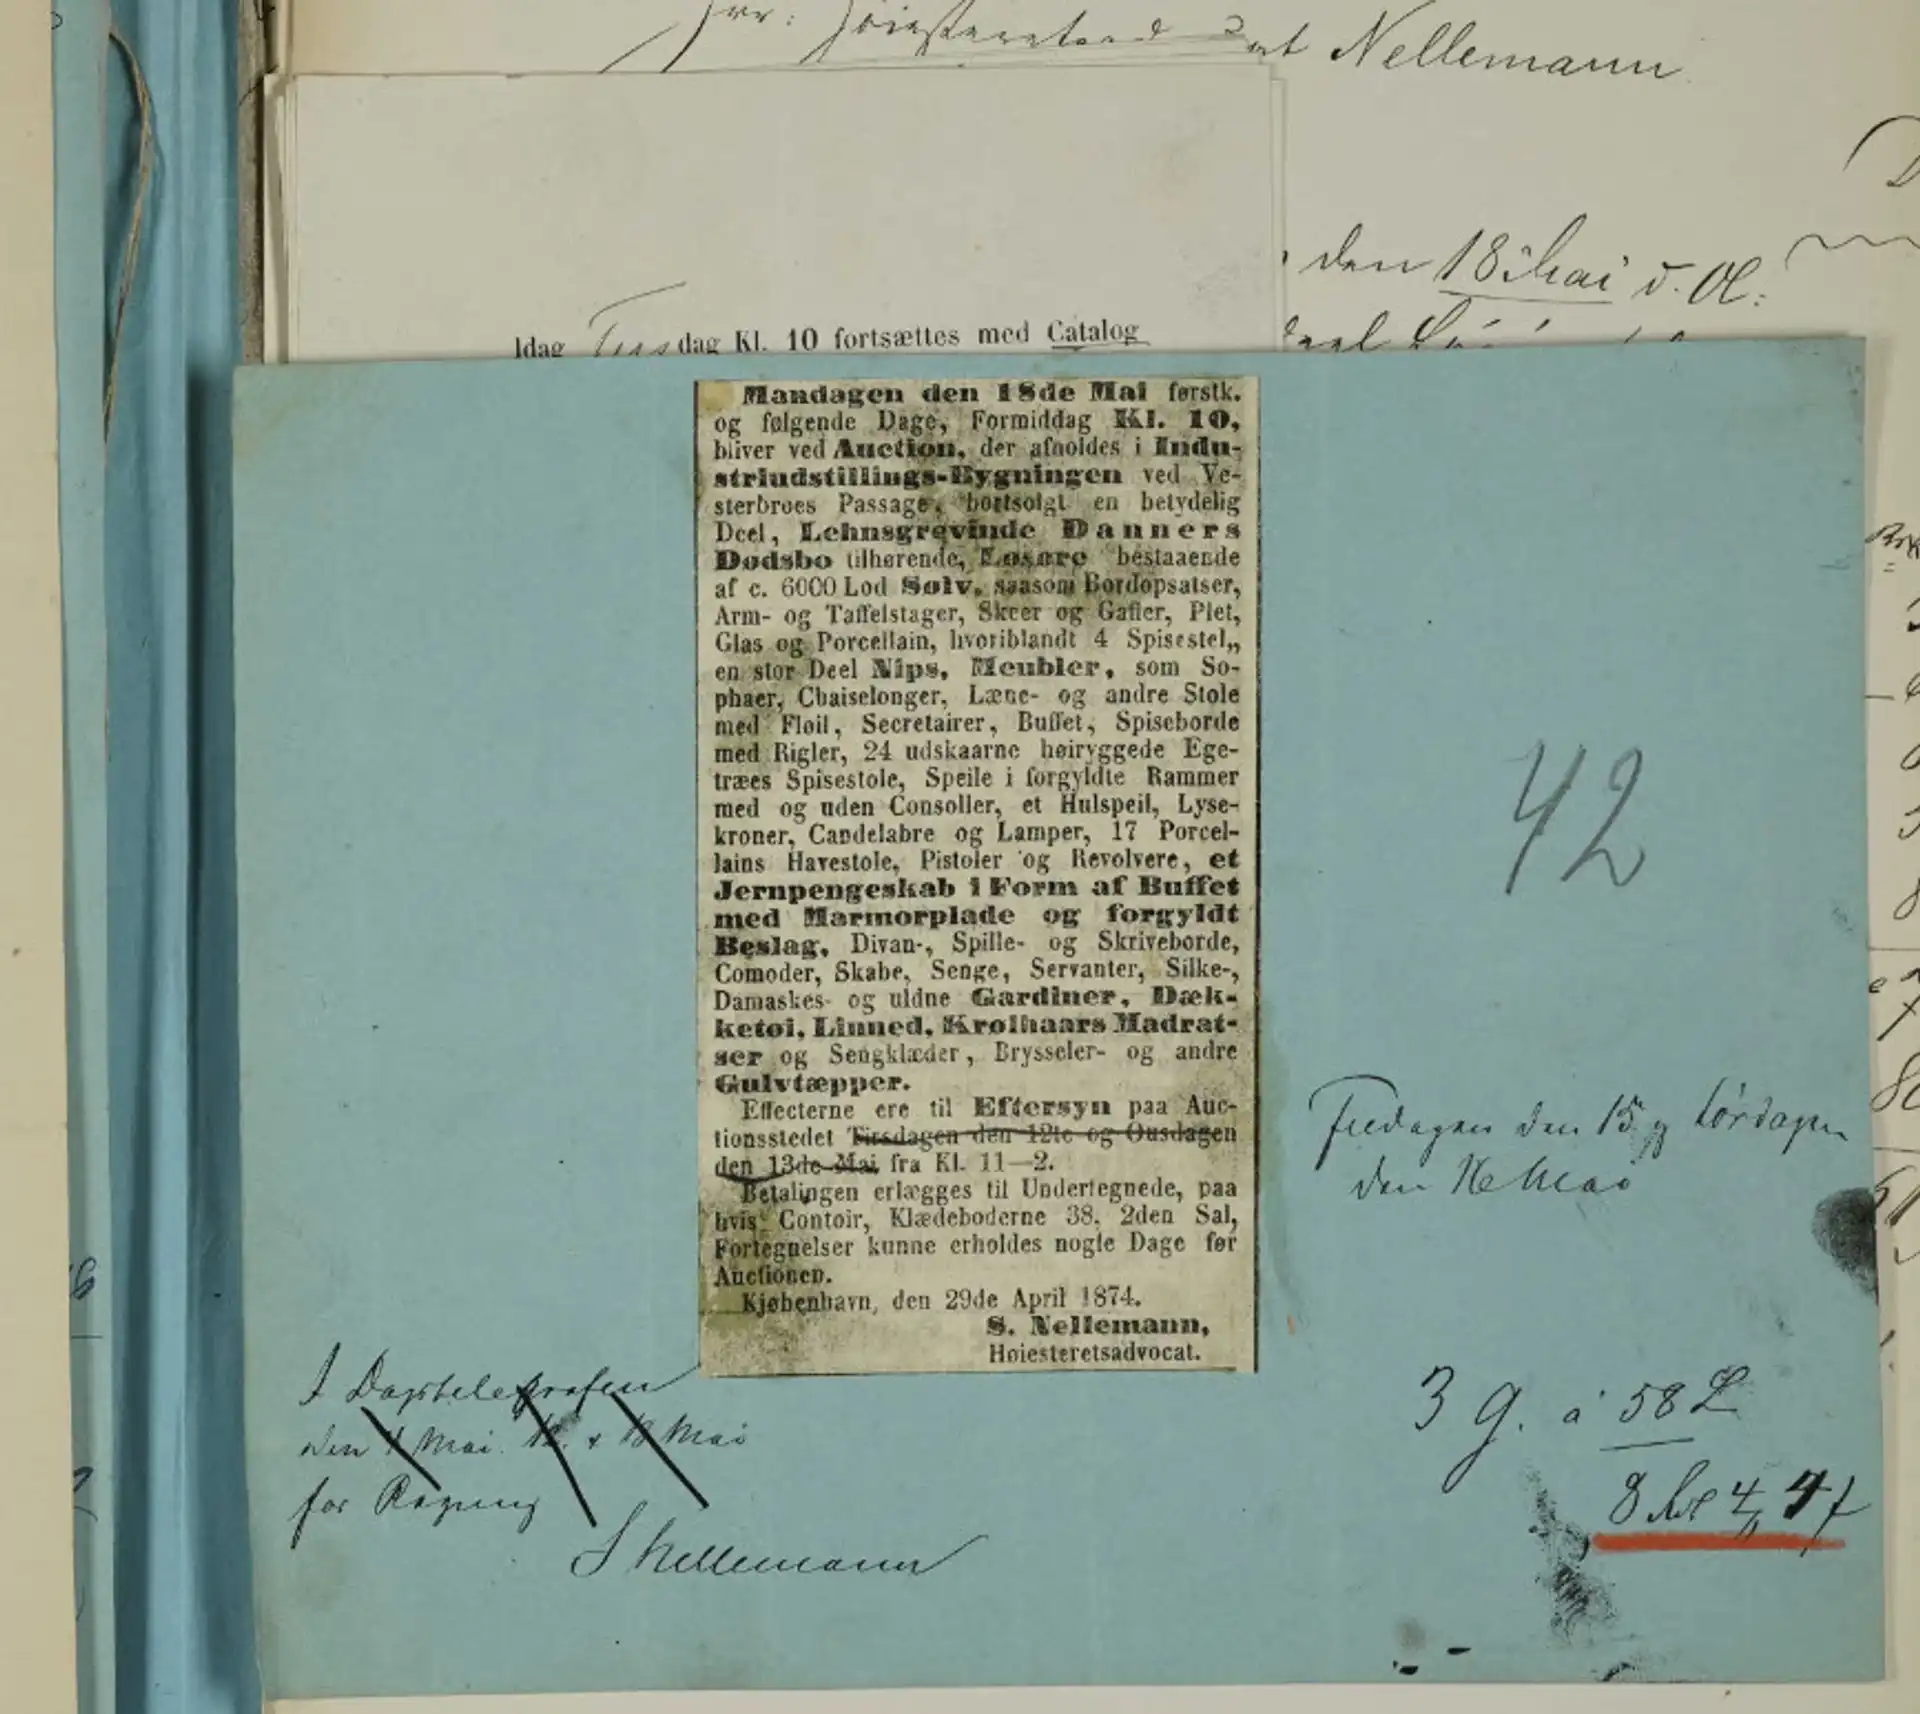 Nellemann
den 18 Mai d. A:
Idag Tirsdag Kl. 10 fortsættes med Catalog
Mandagen den 18de Mai førstk.
og følgende Dage, Formiddag Kl. 10,
bliver ved Auction, der afholdes i Indu-
striudstillings-Bygningen ved Ve-
sterbroes Passage, bortsolgt en betydelig
Deel, Lehnsgrevinde Danners
Dødsbo tilhørende, Løsøre bestaaende
af c. 6000 Lod Sølv, saasom Bordopsatser,
Arm- og Taffelstager, Skeer og Gafler, Plet,
Glas og Porcellain, hvoriblandt 4 Spisestel,,
en stor Deel Nips, Meubler, som So-
phaer, Chaiselonger, Læne- og andre Stole
med Fløil, Secretairer, Buffet, Spiseborde
med Rigler, 24 udskaarne høiryggede Ege-
træes Spisestole, Speile i forgyldte Rammer
med og uden Consoller, et Hulspeil, Lyse-
kroner, Candelabre og Lamper, 17 Porcel-
lains Havestole, Pistoler og Revolvere, et
Jernpengeskab i Form af Buffet
med Marmorplade og forgyldt
Beslag, Divan-, Spille- og Skriveborde,
Comoder, Skabe, Senge, Servanter, Silke-,
Damaskes- og uldne Gardiner, Dæk-
ketøi, Linned, Krølhaars Madrat-
ser og Sengklæder, Brysseler- og andre
Gulvtæpper.
Effecterne ere til Eftersyn paa Auc-
tionsstedet Tirsdagen den 12te og Onsdagen
den 13de Mai fra Kl. 11—2.
Betalingen erlægges til Undertegnede, paa
hvis Contoir, Klædeboderne 38, 2den Sal,
Fortegnelser kunne erholdes nogle Dage før
Auctionen.
Kjøbenhavn, den 29de April 1874.
S. Nellemann,
Høiesteretsadvocat.
42
Fredagen den 15 og Lørdagen
den 16 Mai
I Dagstelegrafen
den Mai. 12. & 13 Mai
for Regning
S Nellemann
3 G. a 58 L
8 4